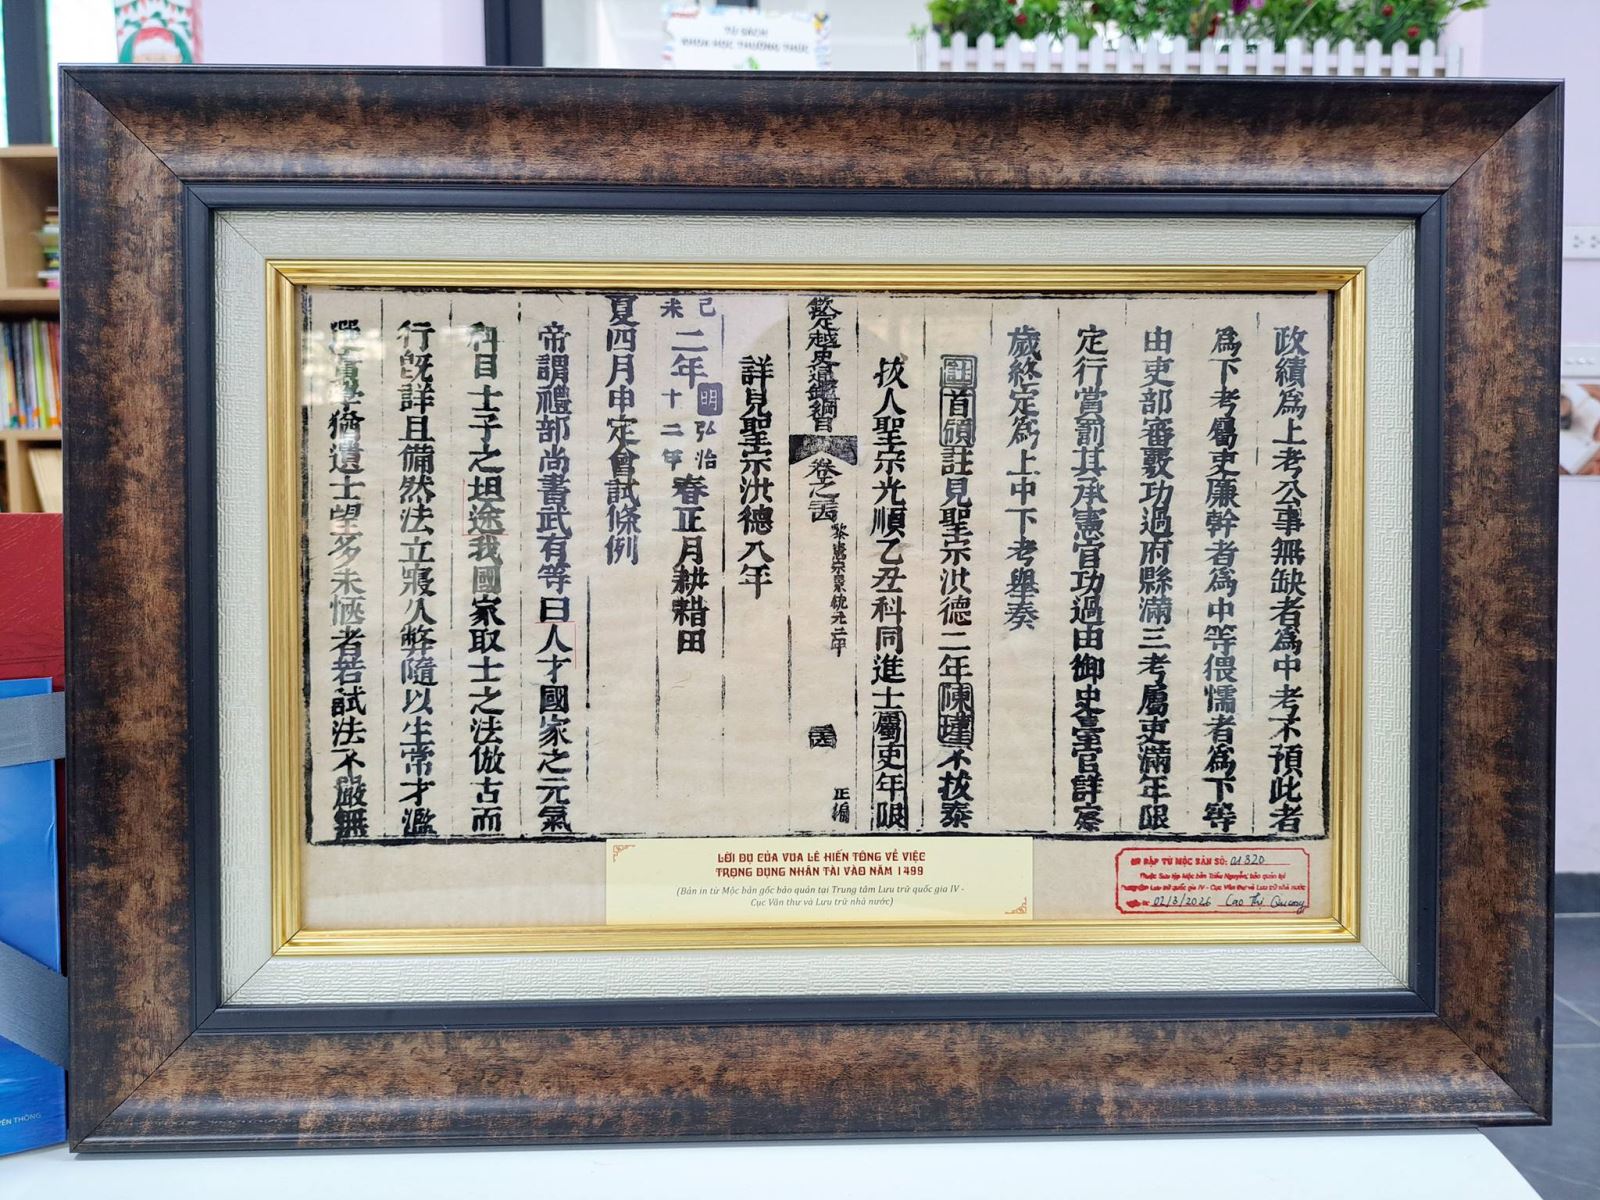 TỦ SÁCH
KHOA HỌC THƯỜNG THỨC
政績爲上考公事無缺者爲中考不預此者
爲下考屬吏廉幹者爲中等偎懦者爲下等
由吏部審覈功過府縣滿三考屬吏滿年限
定行當罰其承憲官功過由御史臺官詳察
歲終定爲上中下考舉奏
註首領註見聖宗洪德二年陳瑾不拔泰
拔人聖宗光順乙丑科同進士屬吏年限
欽定越史通鑑綱目
卷之
黎憲宗景統元二年
正編
詳見聖宗洪德八年
己未二年明弘治十二年春正月耕耤田
夏四月申定會試條例
帝謂禮部尚書武有等曰人才國家之元氣
科目士子之坦途我國家取士之法倣古而
行旣詳且備然法立寖久弊隨以生常才濫
選實學猶遺士望多未愜者若試法不嚴無
LỜI DỤ CỦA VUA LÊ HIẾN TÔNG VỀ VIỆC
TRỌNG DỤNG NHÂN TÀI VÀO NĂM 1499
(Bản in từ Mộc bản gốc bảo quản tại Trung tâm Lưu trữ quốc gia IV -
Cục Văn thư và Lưu trữ nhà nước)
DẬP TỪ MỘC BẢN SỐ: 01320
Thuộc Sưu tập Mộc bản Triều Nguyễn, bảo quản tại
Trung tâm Lưu trữ quốc gia IV - Cục Văn thư và Lưu trữ nhà nước
02/3/2026 Cao Thị Quang